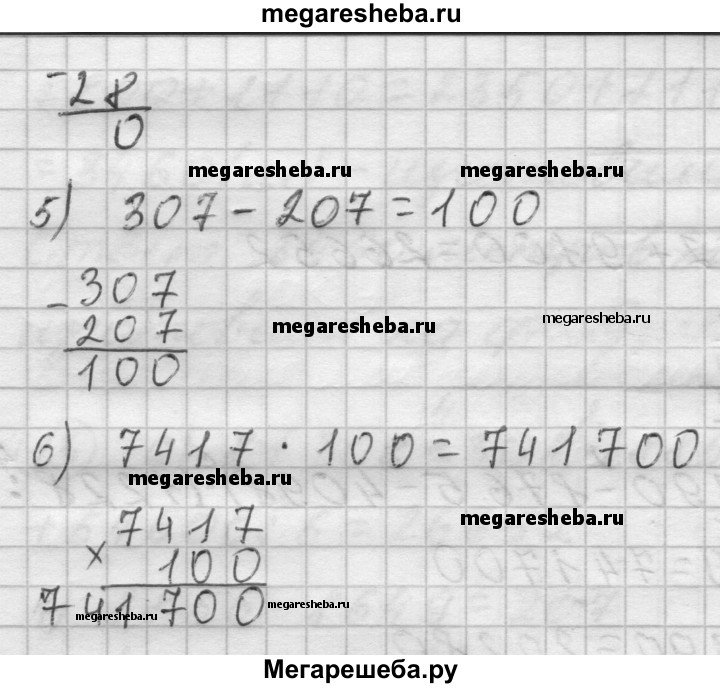 megaresheba.ru
- 28
0
megaresheba.ru megaresheba.ru
5) 307 - 207 = 100
- 307
megaresheba.ru
207
megaresheba.ru
100
6) 7417 · 100 = 741700
megaresheba.ru
7417
megaresheba.ru
× 100
741700
megaresheba.ru megaresheba.ru
Мегарешеба.ру